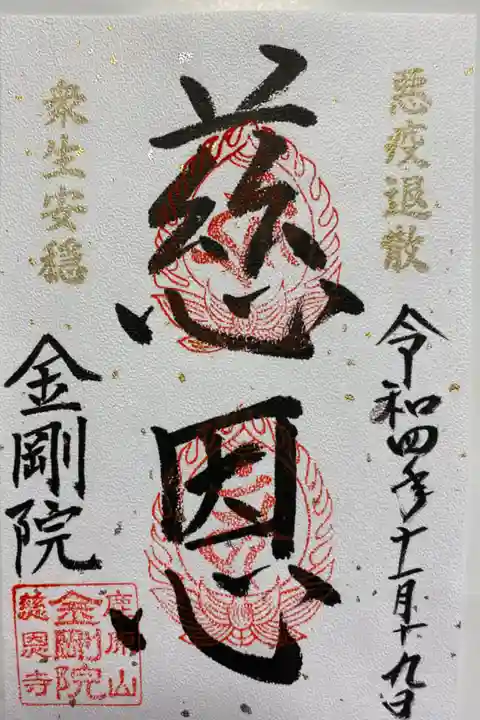 悪疫退散
令和四年十一月十九日
慈恩
衆生安穏
金剛院
金剛院
慈恩寺